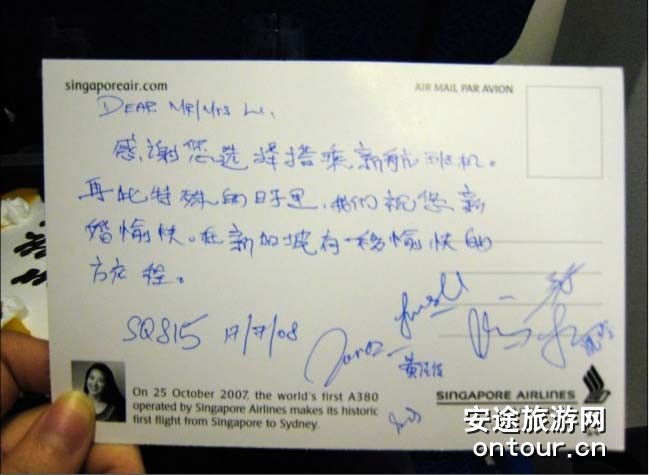 singaporeair.com
AIR MAIL PAR AVION
DEAR MR/MRS LI,
感谢您选择搭乘新航班机。
再此特殊的日子里,我们祝您新
婚愉快。在新加坡有一移愉快的
方在程。
SQ815 17/7/08
On 25 October 2007, the world's first A380
operated by Singapore Airlines makes its historic
first flight from Singapore to Sydney.
SINGAPORE AIRLINES
安途旅游网
ontour.cn